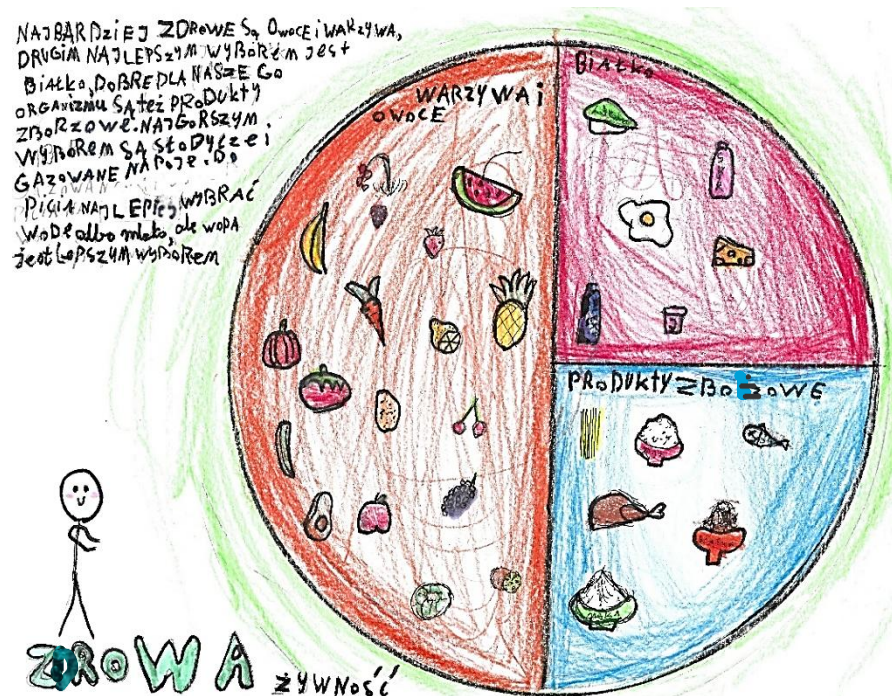 NAJBARDZIEJ ZDROWE Są OWOCE i WARZYWA,
DRUGIM NAJLEPSZYM WYBOREM JEST
BIAŁKO, DOBRE DLA NASZEGO
ORGANIZMU SĄ też PRODUKTY
ZBORZOWE. NAJGORSZYM
WYBOREM SĄ SŁODYCZE i
GAZOWANE NAPOJE. DO
PICIA NAJLEPIEJ WYBRAĆ
WODĘ albo mleko, ale WODA
jest LEPSZYM WYBOREM
WARZYWA i
OWOCE
BIAŁKO
PRODUKTY ZBOŻOWE
ZDROWA ŻYWNOŚĆ